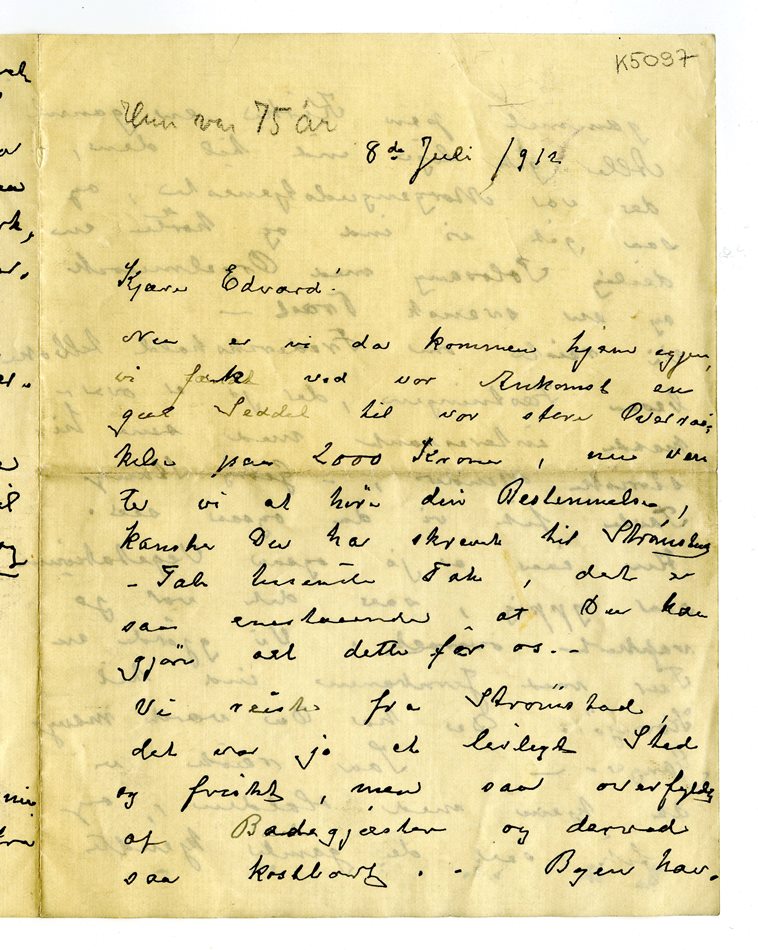 K5097
Hun var 75 år
8de Juli /912
Kjære Edvard!
Nu er vi da kommen hjem igjen,
vi fankt ved vor Ankomst en
gul Seddel til vor store Overras-
kelse paa 2000 Kroner, nu ven
te vi at høre din Bestemmelse,
kanske Du har skrevet til Strømstad
- Tak tusende Tak, det er
saa enestaaende at Du kan
gjøre alt dette før os. -
Vi reiste fra Strømstad,
det var jo et leiligt Sted
og friskt, men saa overfyldt
af Badegjæster og derved
saa kostbart. - Byen hav-